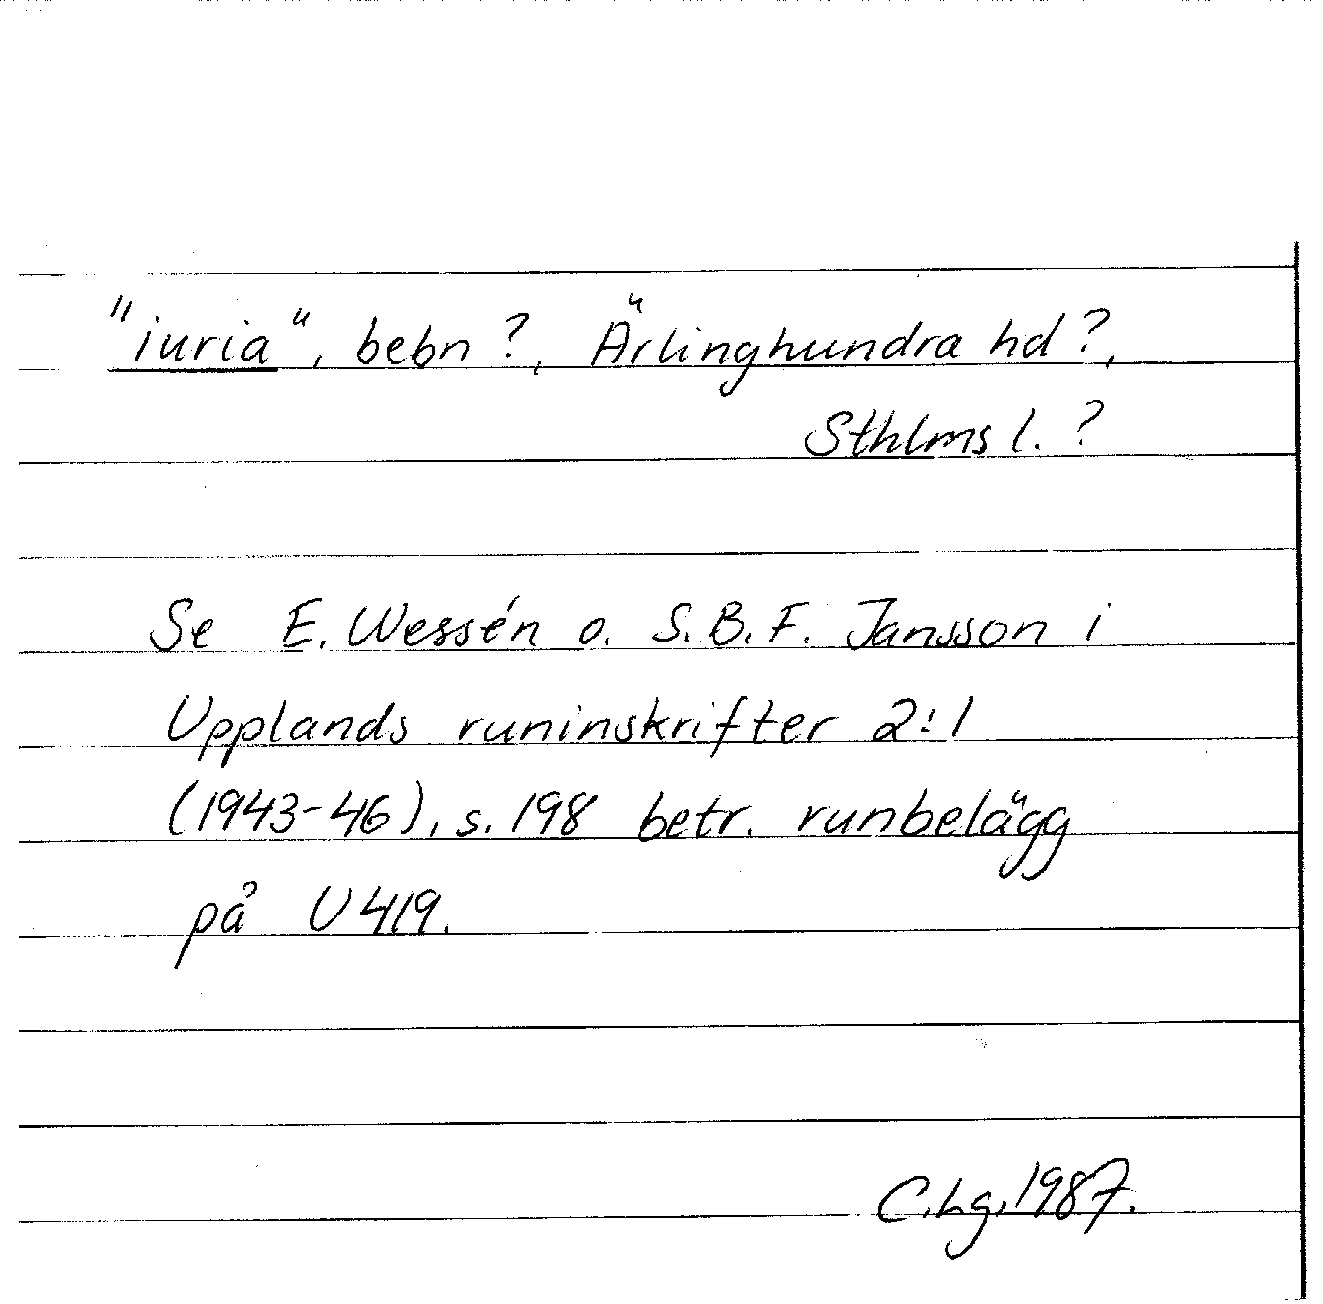 "iuria", bebn?, Ärlinghundra hd?,
Sthlms l.?
Se E. Wessén o. S.B.F. Jansson i
Upplands runinskrifter 2:1
(1943-46), s. 198 betr. runbelägg
på U 419.
C.Lg. 1987.